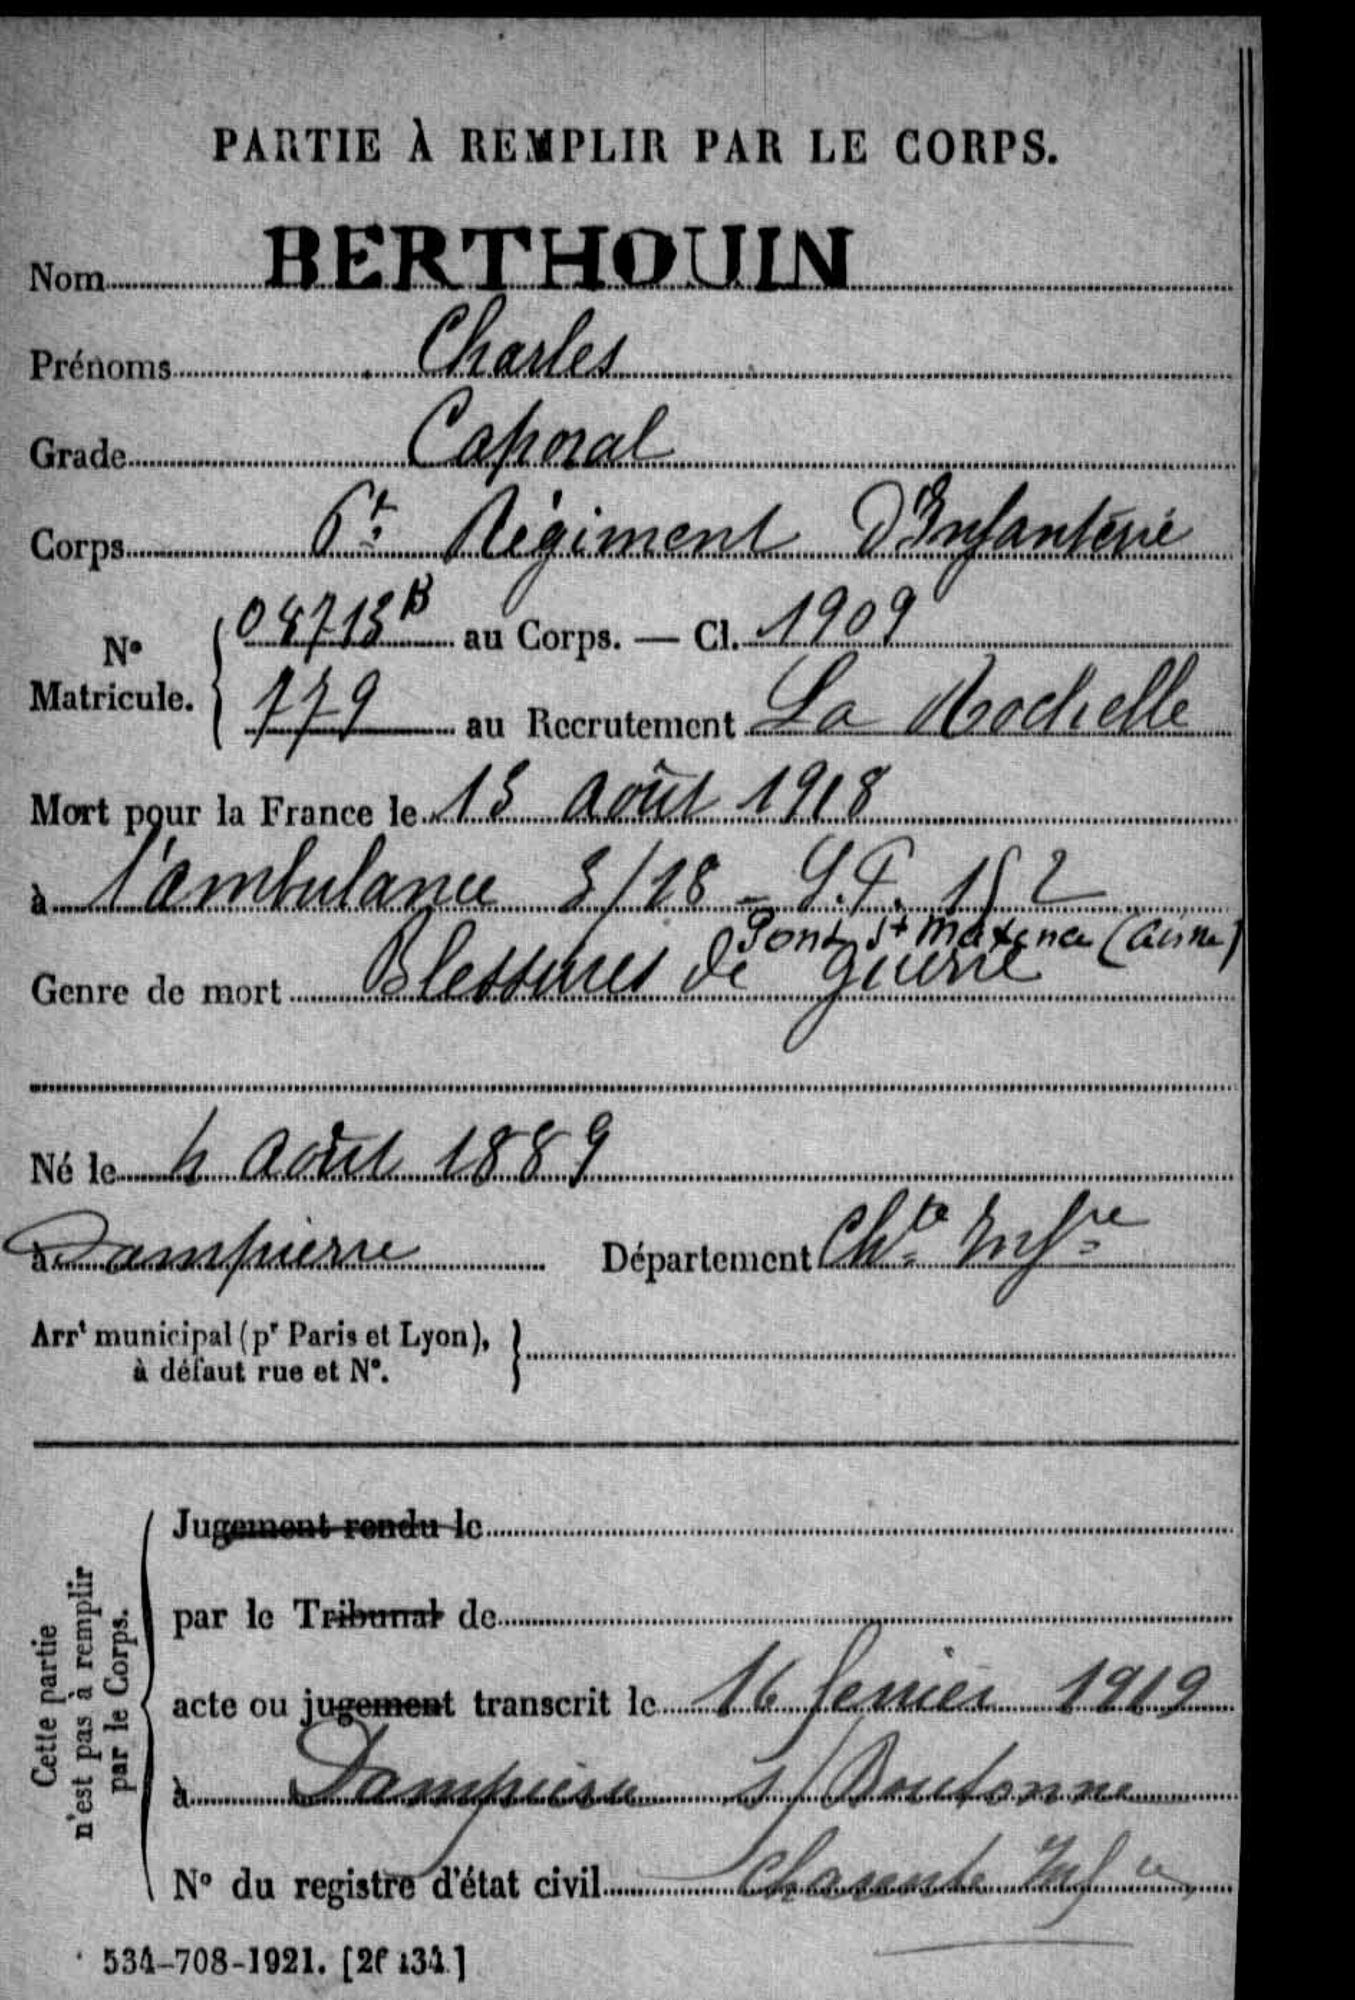 PARTIE À REMPLIR PAR LE CORPS.
Nom BERTHOUIN
Prénoms Charles
Grade Caporal
Corps 6e Régiment D'Infanterie
No Matricule. 08713B au Corps. — Cl. 1909
779 au Recrutement La Rochelle
Mort pour la France le 13 Août 1918
à l'ambulance 3/18 - S.P. 152
Pont St Maxence (Aisne)
Genre de mort Blessures de guerre
Né le 4 Août 1889
à Dampierre Département Chte Infre
Arrt municipal (pr Paris et Lyon),
à défaut rue et No.
Cette partie
n'est pas à remplir
par le Corps.
Jugement rendu le
par le Tribunal de
acte ou jugement transcrit le 16 fevrier 1919
à Dampierre s/ Boutonne
No du registre d'état civil Charente Infre
534-708-1921. [26134.]